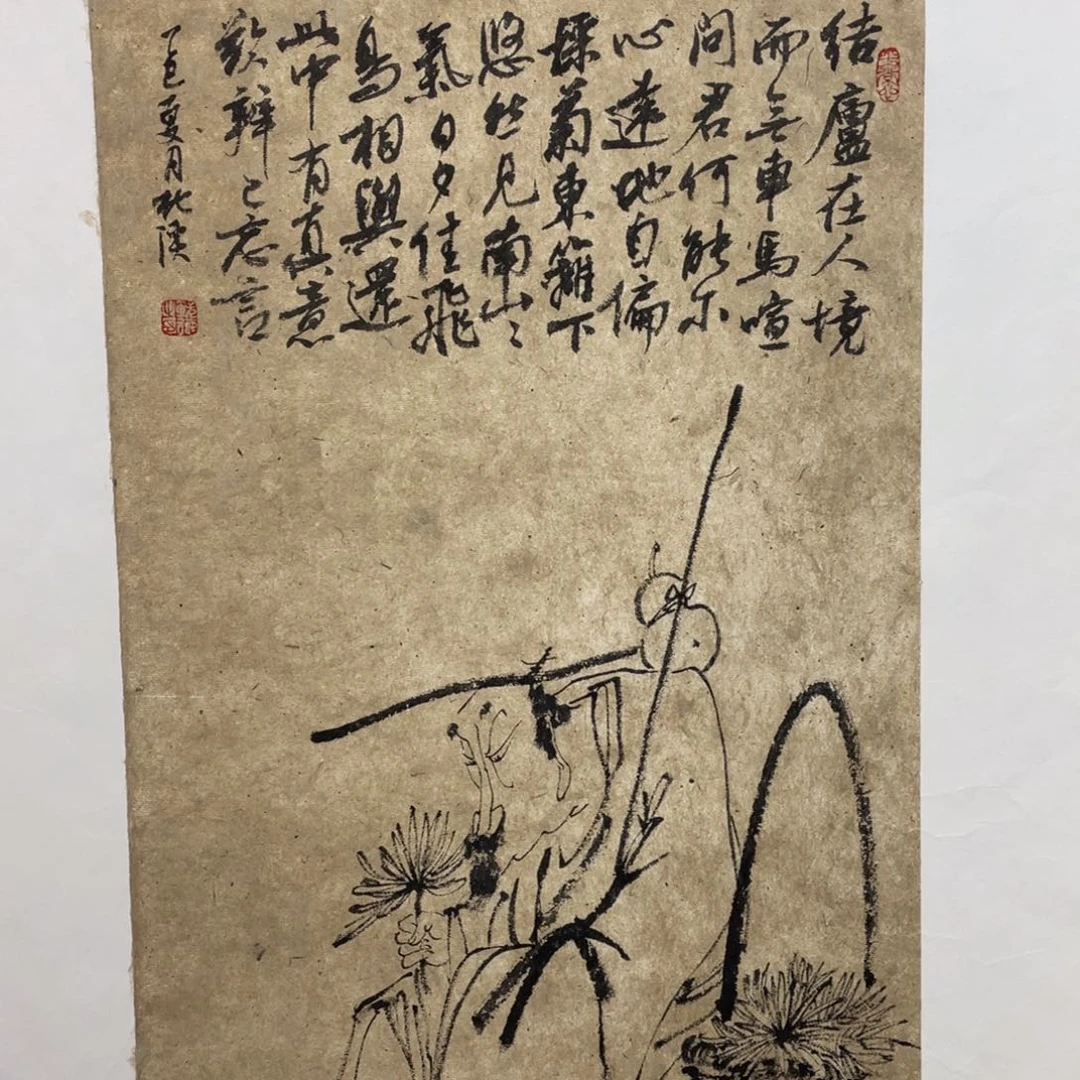 结廬在人境
而無車馬喧
问君何能尔
心遠地自偏
採菊東籬下
悠然见南山〻
氣日夕佳飛
鳥相與還
此中有真意
欲辨已忘言
巳夏月